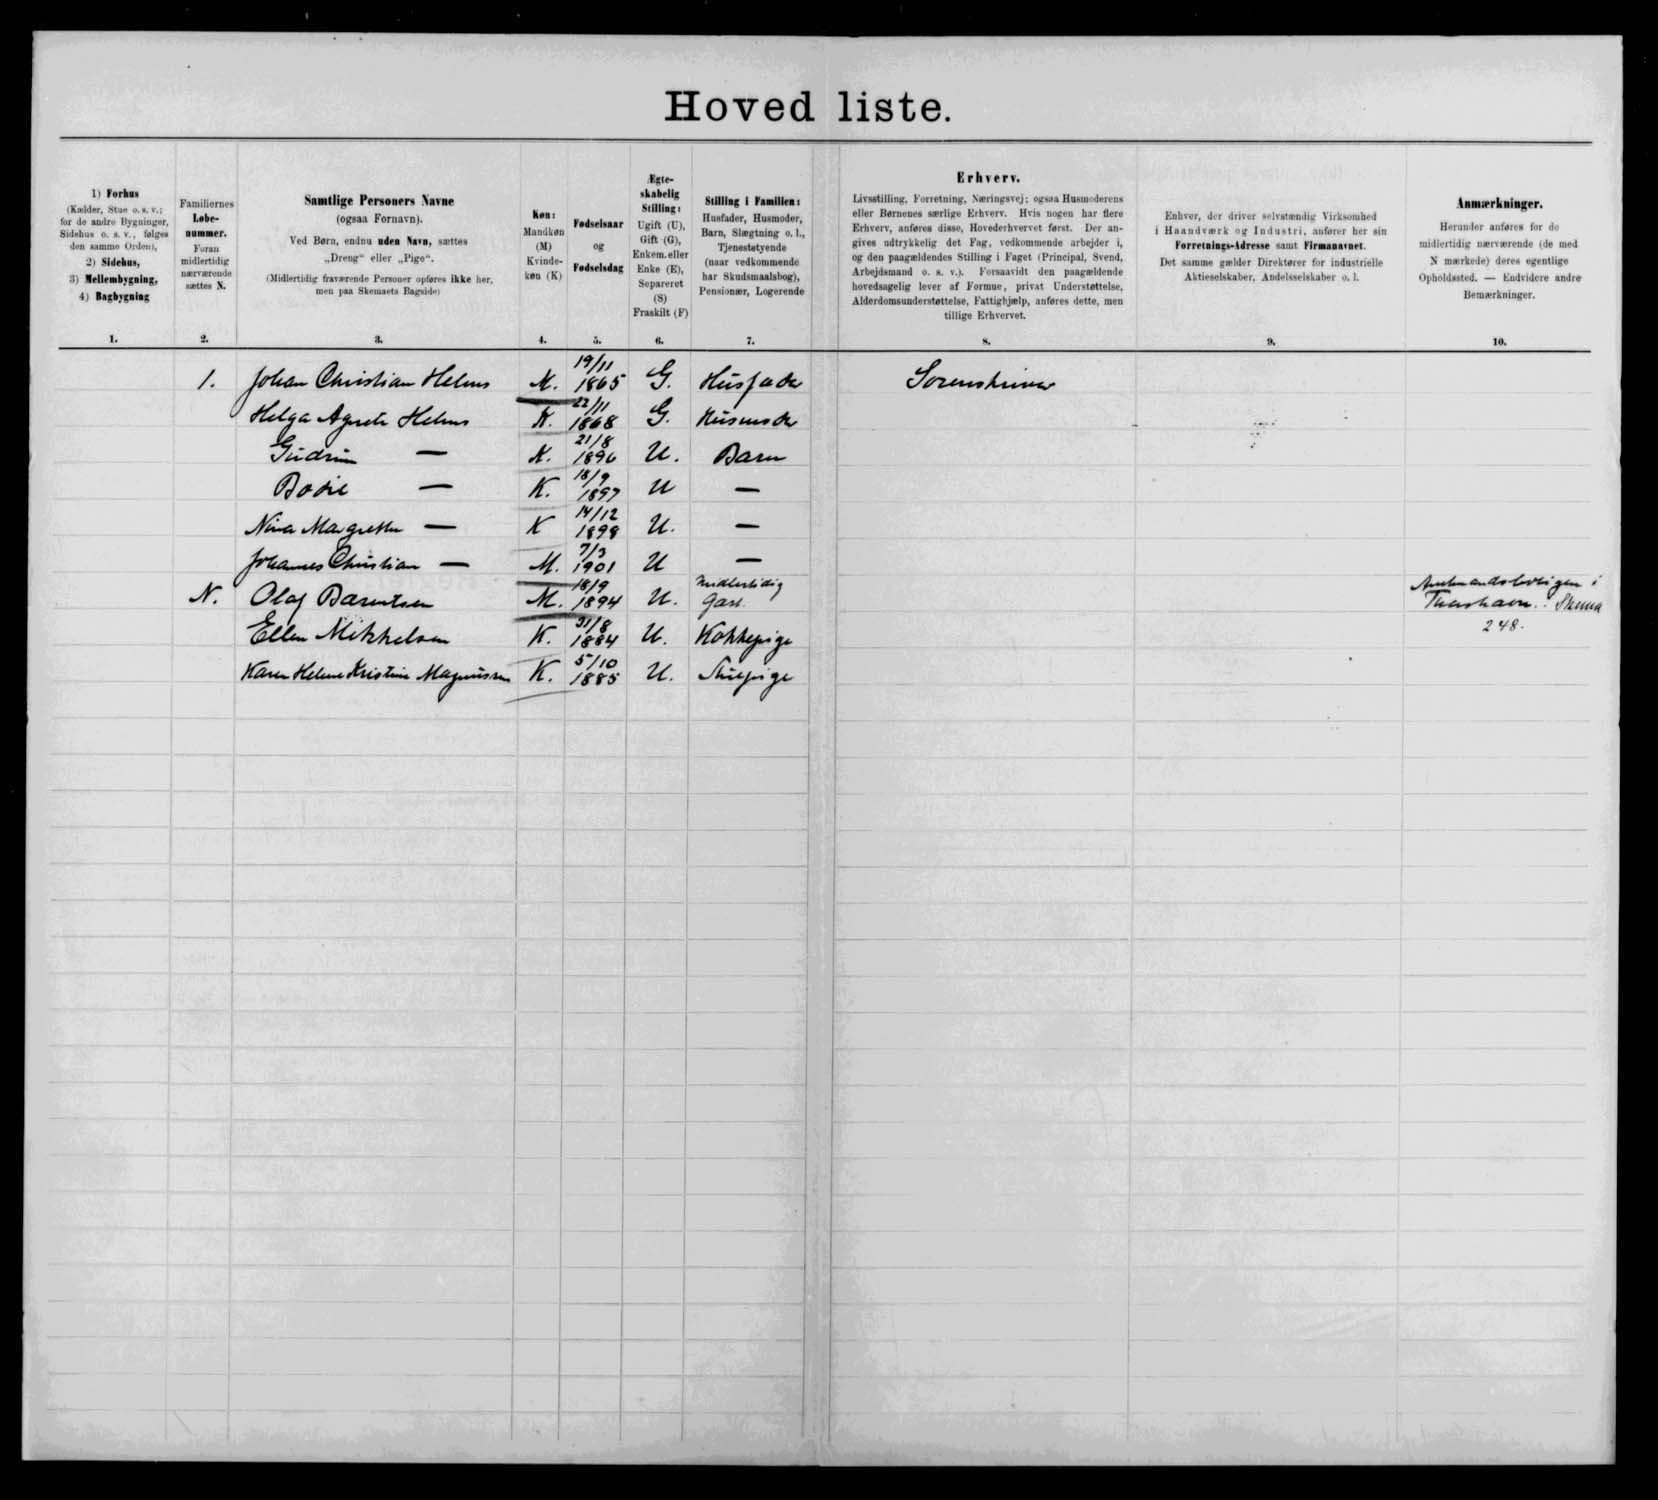 Hoved liste.
1) Forhus
(Kælder, Stue o. s. v.;
for de andre Bygninger,
Sidehus o. s. v., følges
den samme Orden),
2) Sidehus,
3) Mellembygning,
4) Bagbygning
1.
Familiernes
Løbe-
nummer.
Foran
midlertidig
nærværende
sættes N.
2.
Samtlige Personers Navne
(ogsaa Fornavn).
Ved Børn, endnu uden Navn, sættes
„Dreng“ eller „Pige“.
(Midlertidig fraværende Personer opføres ikke her,
men paa Skemaets Bagside)
3.
Køn:
Mandkøn
(M)
Kvinde-
køn (K)
4.
Fødselsaar
og
Fødselsdag
5.
Ægte-
skabelig
Stilling:
Ugift (U),
Gift (G),
Enkem. eller
Enke (E),
Separeret
(S)
Fraskilt (F)
6.
Stilling i Familien:
Husfader, Husmoder,
Barn, Slægtning o. l.,
Tjenestetyende
(naar vedkommende
har Skudsmaalsbog),
Pensionær, Logerende
7.
Erhverv.
Livsstilling, Forretning, Næringsvej; ogsaa Husmoderens
eller Børnenes særlige Erhverv. Hvis nogen har flere
Erhverv, anføres disse, Hovederhvervet først. Der an-
gives udtrykkelig det Fag, vedkommende arbejder i,
og den paagældendes Stilling i Faget (Principal, Svend,
Arbejdsmand o. s. v.). Forsaavidt den paagældende
hovedsagelig lever af Formue, privat Understøttelse,
Alderdomsunderstøttelse, Fattighjælp, anføres dette, men
tillige Erhvervet.
8.
Enhver, der driver selvstændig Virksomhed
i Haandværk og Industri, anfører her sin
Forretnings-Adresse samt Firmanavnet.
Det samme gælder Direktører for industrielle
Aktieselskaber, Andelsselskaber o. l.
9.
Anmærkninger.
Herunder anføres for de
midlertidig nærværende (de med
N mærkede) deres egentlige
Opholdssted. — Endvidere andre
Bemærkninger.
10.
1. Johan Christian Helms M. 19/11 1865 G. Husfader Sorenskriver
Helga Agnete Helms K. 22/11 1868 G. Husmoder
Gudrun — K. 21/8 1896 U. Barn
Bodil — K. 18/9 1897 U —
Nina Margrethe — K 14/12 1898 U. —
Johannes Christian — M. 7/3 1901 U —
N. Olaf Bærentsen M. 18/9 1894 U. Midlertidig Gæst. Amtmandsboligen i Thorshavn. Skema 248.
Ellen Mikkelsen K. 31/8 1884 U. Kokkepige
Karen Helene Kristine Magnussen K. 5/10 1885 U. Stuepige